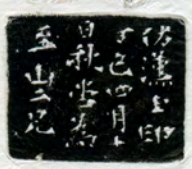 仿漢玉印
丁巳四月十
日秋堂為
玉山二兄